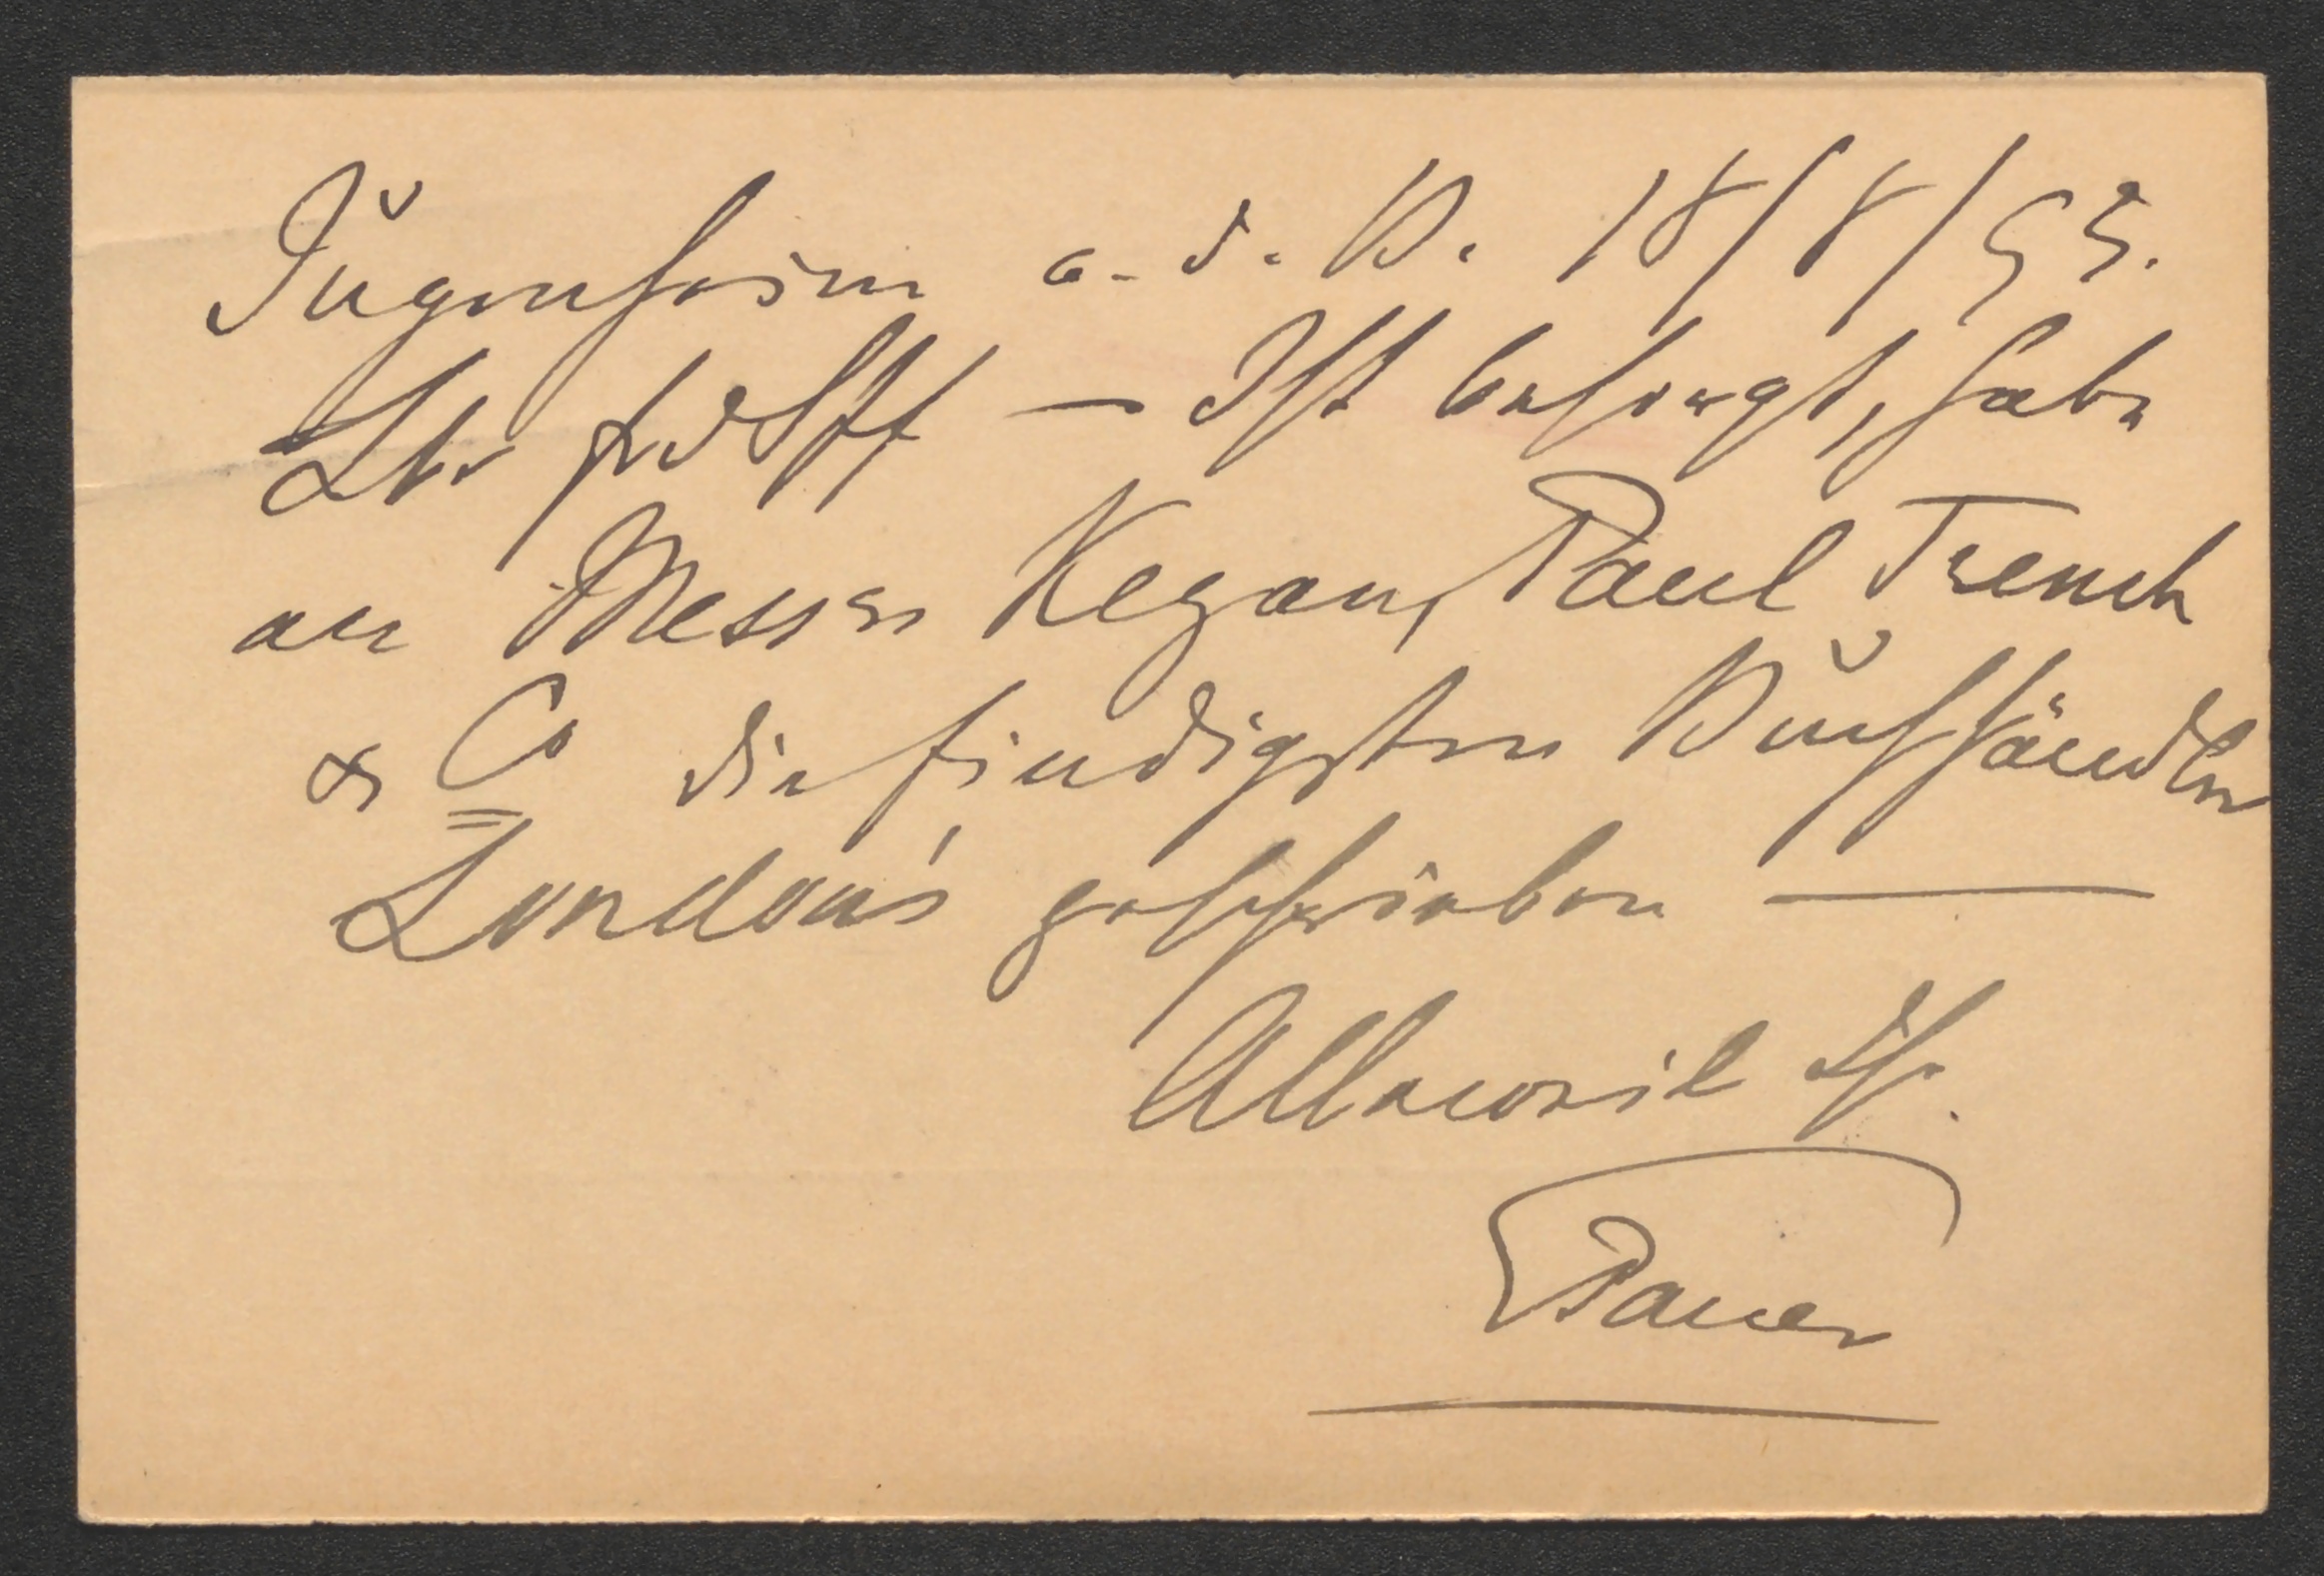 Jugenheim a. d. B. 18/8/95.
Lbr — Ist besorgt, habe
an Messrs Kegan, Paul Trench
& Co die findigsten Buchhändler
London's geschrieben —
Allweil Ihr
Pauer